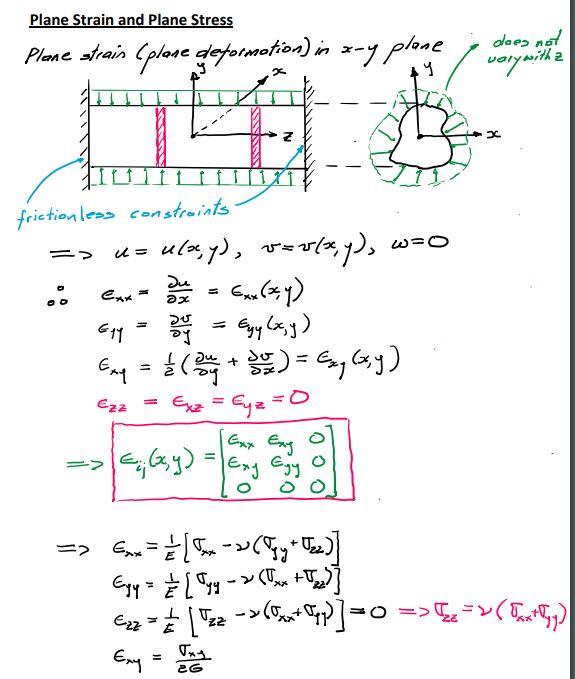 Plane Strain and Plane Stress
Plane strain (plane deformation) in x-y plane
does not
vary with z
y
x
z
y
x
frictionless constraints
=> u = u(x,y), v = v(x,y), w = 0
∴ ϵxx = ∂u/∂x = ϵxx(x,y)
ϵyy = ∂v/∂y = ϵyy(x,y)
ϵxy = 1/2 (∂u/∂y + ∂v/∂x) = ϵxy(x,y)
ϵzz = ϵxz = ϵyz = 0
=> ϵij(x,y) = [ϵxx ϵxy 0
ϵxy ϵyy 0
0 0 0]
=> ϵxx = 1/E [σxx - ν(σyy + σzz)]
ϵyy = 1/E [σyy - ν(σxx + σzz)]
ϵzz = 1/E [σzz - ν(σxx + σyy)] = 0 => σzz = ν(σxx + σyy)
ϵxy = σxy/2G